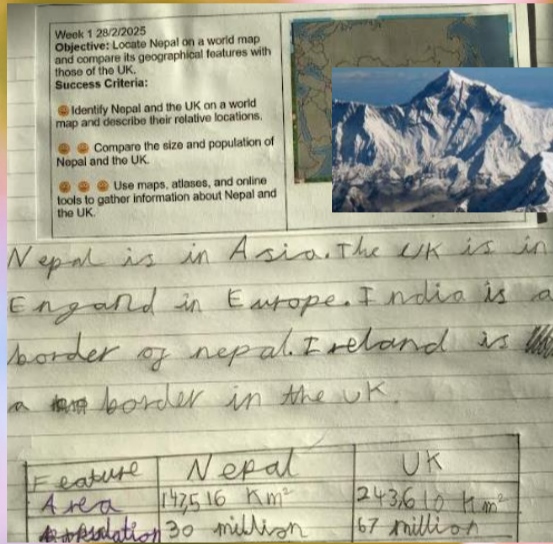 Week 1 28/2/2025
Objective: Locate Nepal on a world map
and compare its geographical features with
those of the UK.
Success Criteria:
Identify Nepal and the UK on a world
map and describe their relative locations.
Compare the size and population of
Nepal and the UK.
Use maps, atlases, and online
tools to gather information about Nepal and
the UK.
Nepal is in Asia. The UK is in
Engand in Europe. India is a
border of nepal. Ireland is
a border in the UK.
Feature Nepal UK
Area 147,516 Km² 243,610 Km²
Population 30 million 67 million